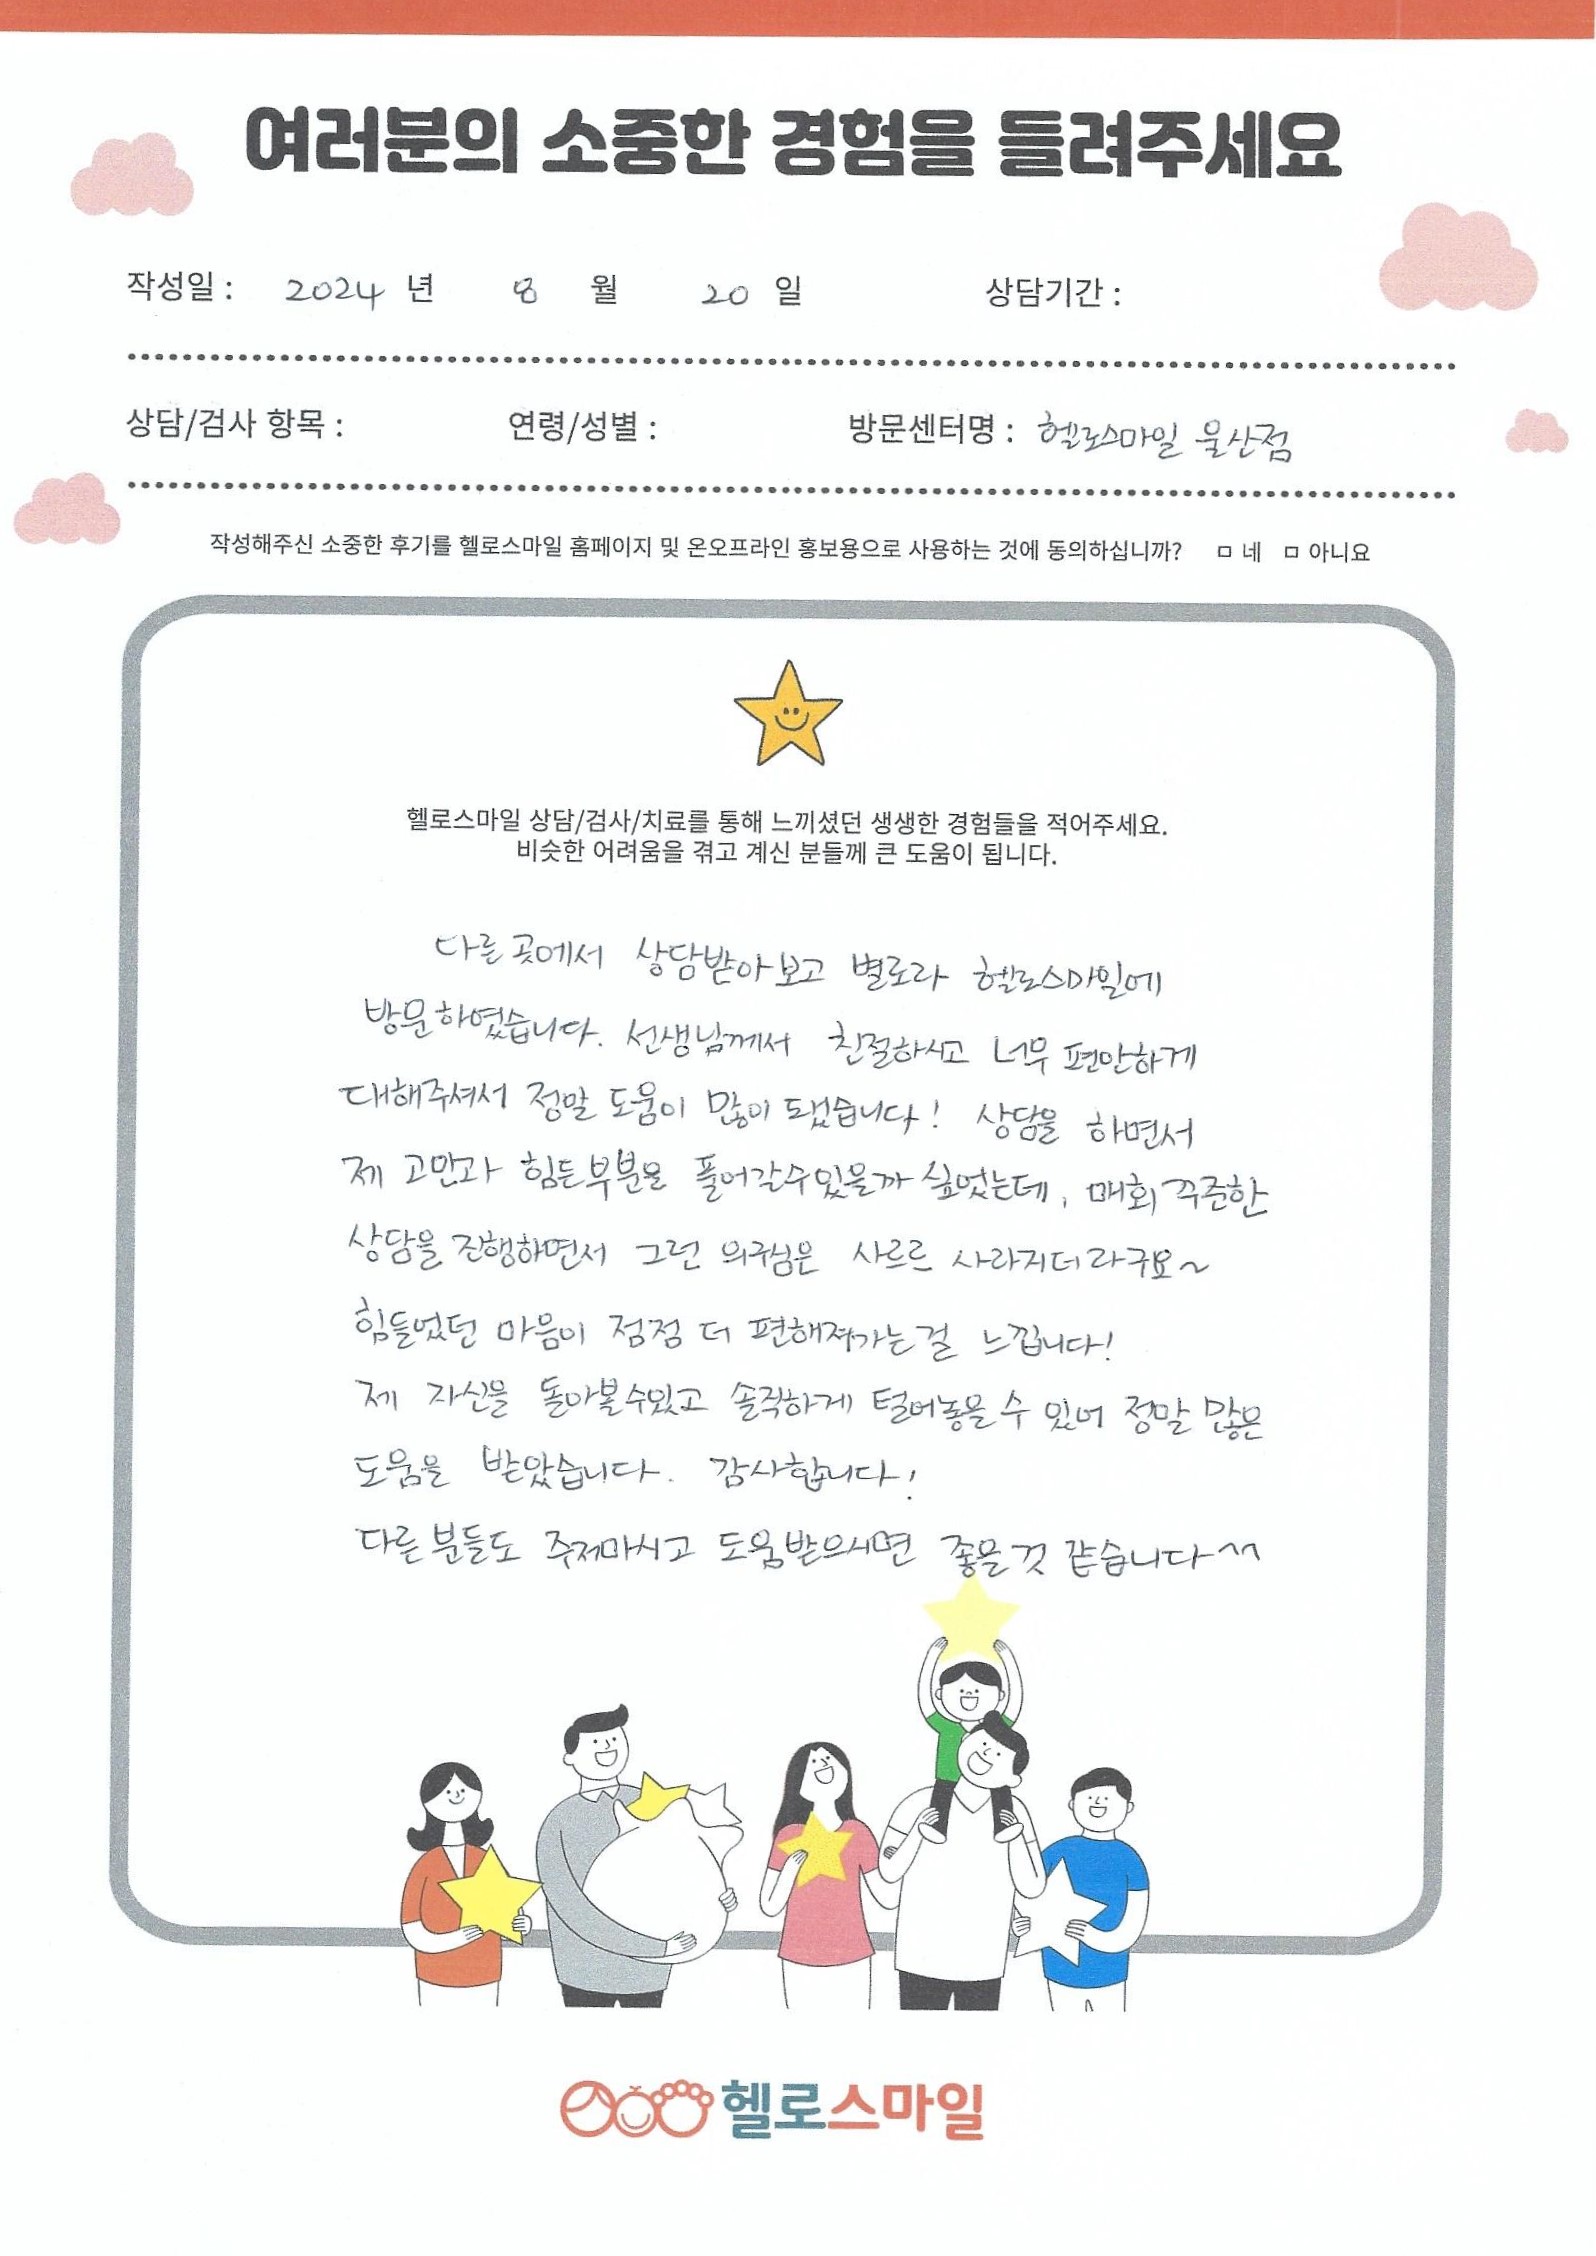 여러분의 소중한 경험을 들려주세요
작성일 : 2024 년 8 월 20 일 상담기간 :
상담/검사 항목 : 연령/성별 : 방문센터명 : 헬로스마일 울산점
작성해주신 소중한 후기를 헬로스마일 홈페이지 및 온오프라인 홍보용으로 사용하는 것에 동의하십니까? ㅁ 네 ㅁ 아니요
헬로스마일 상담/검사/치료를 통해 느끼셨던 생생한 경험들을 적어주세요.
비슷한 어려움을 겪고 계신 분들께 큰 도움이 됩니다.
다른 곳에서 상담받아보고 별로라 헬로스마일에
방문하였습니다. 선생님께서 친절하시고 너무 편안하게
대해주셔서 정말 도움이 많이 됐습니다! 상담을 하면서
제 고민과 힘든부분을 풀어갈수있을까 싶었는데, 매회 꾸준한
상담을 진행하면서 그런 의구심은 사르르 사라지더라구요~
힘들었던 마음이 점점 더 편해져가는걸 느낍니다!
제 자신을 돌아볼수있고 솔직하게 털어놓을 수 있어 정말 많은
도움을 받았습니다. 감사합니다!
다른 분들도 주저마시고 도움받으시면 좋을것 같습니다^^
헬로스마일